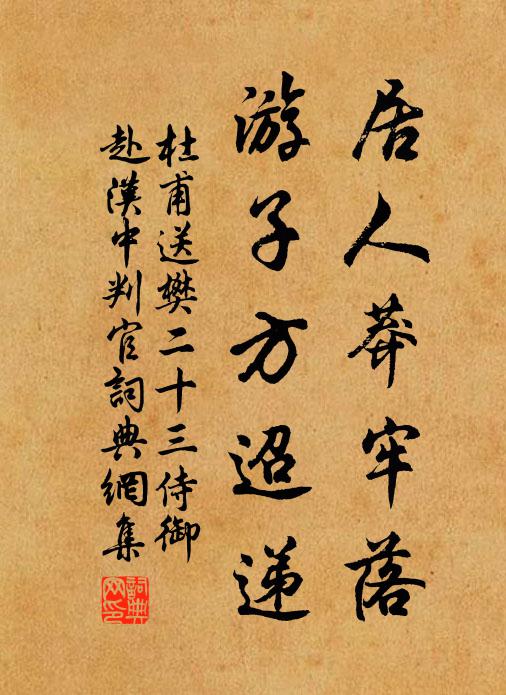 居人莽牢落
游子方迢递
杜甫送樊二十三侍御
赴漢中判官詞典網集
詞典
网印